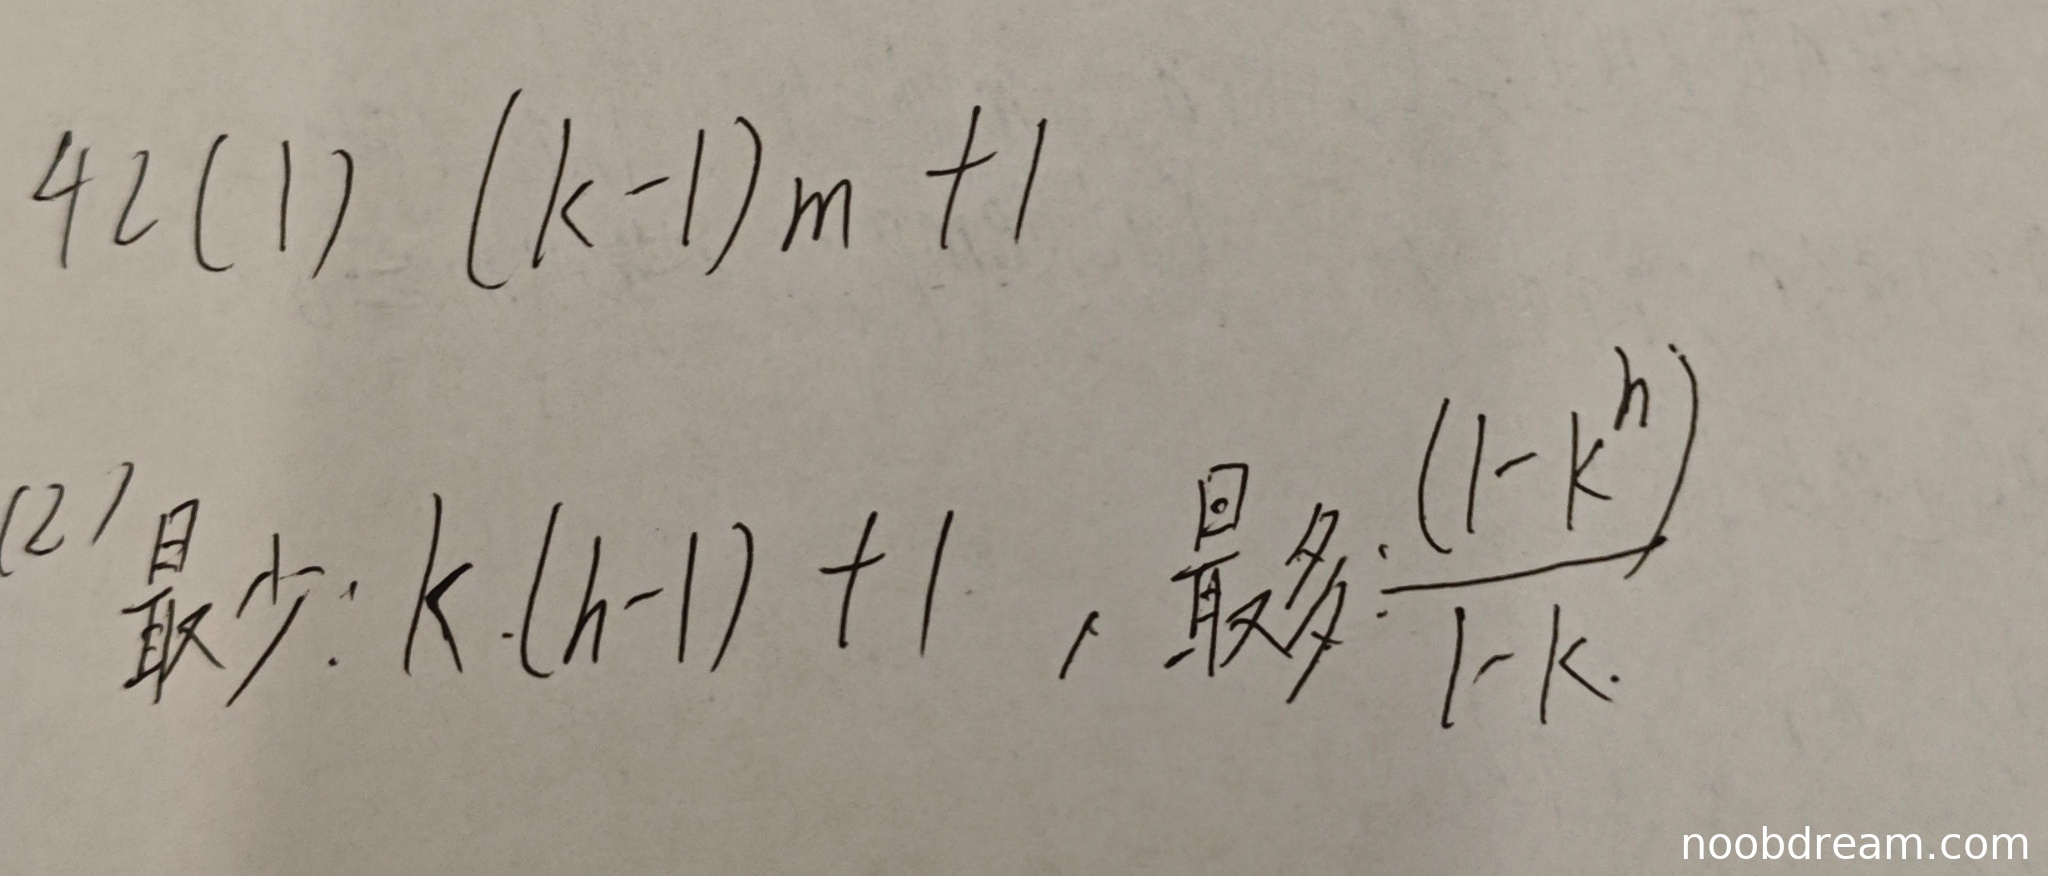 42(1) (k-1)m+1
(2) 最少: k.(h-1)+1 , 最多: (1-k^h)/(1-k).
noobdream.com